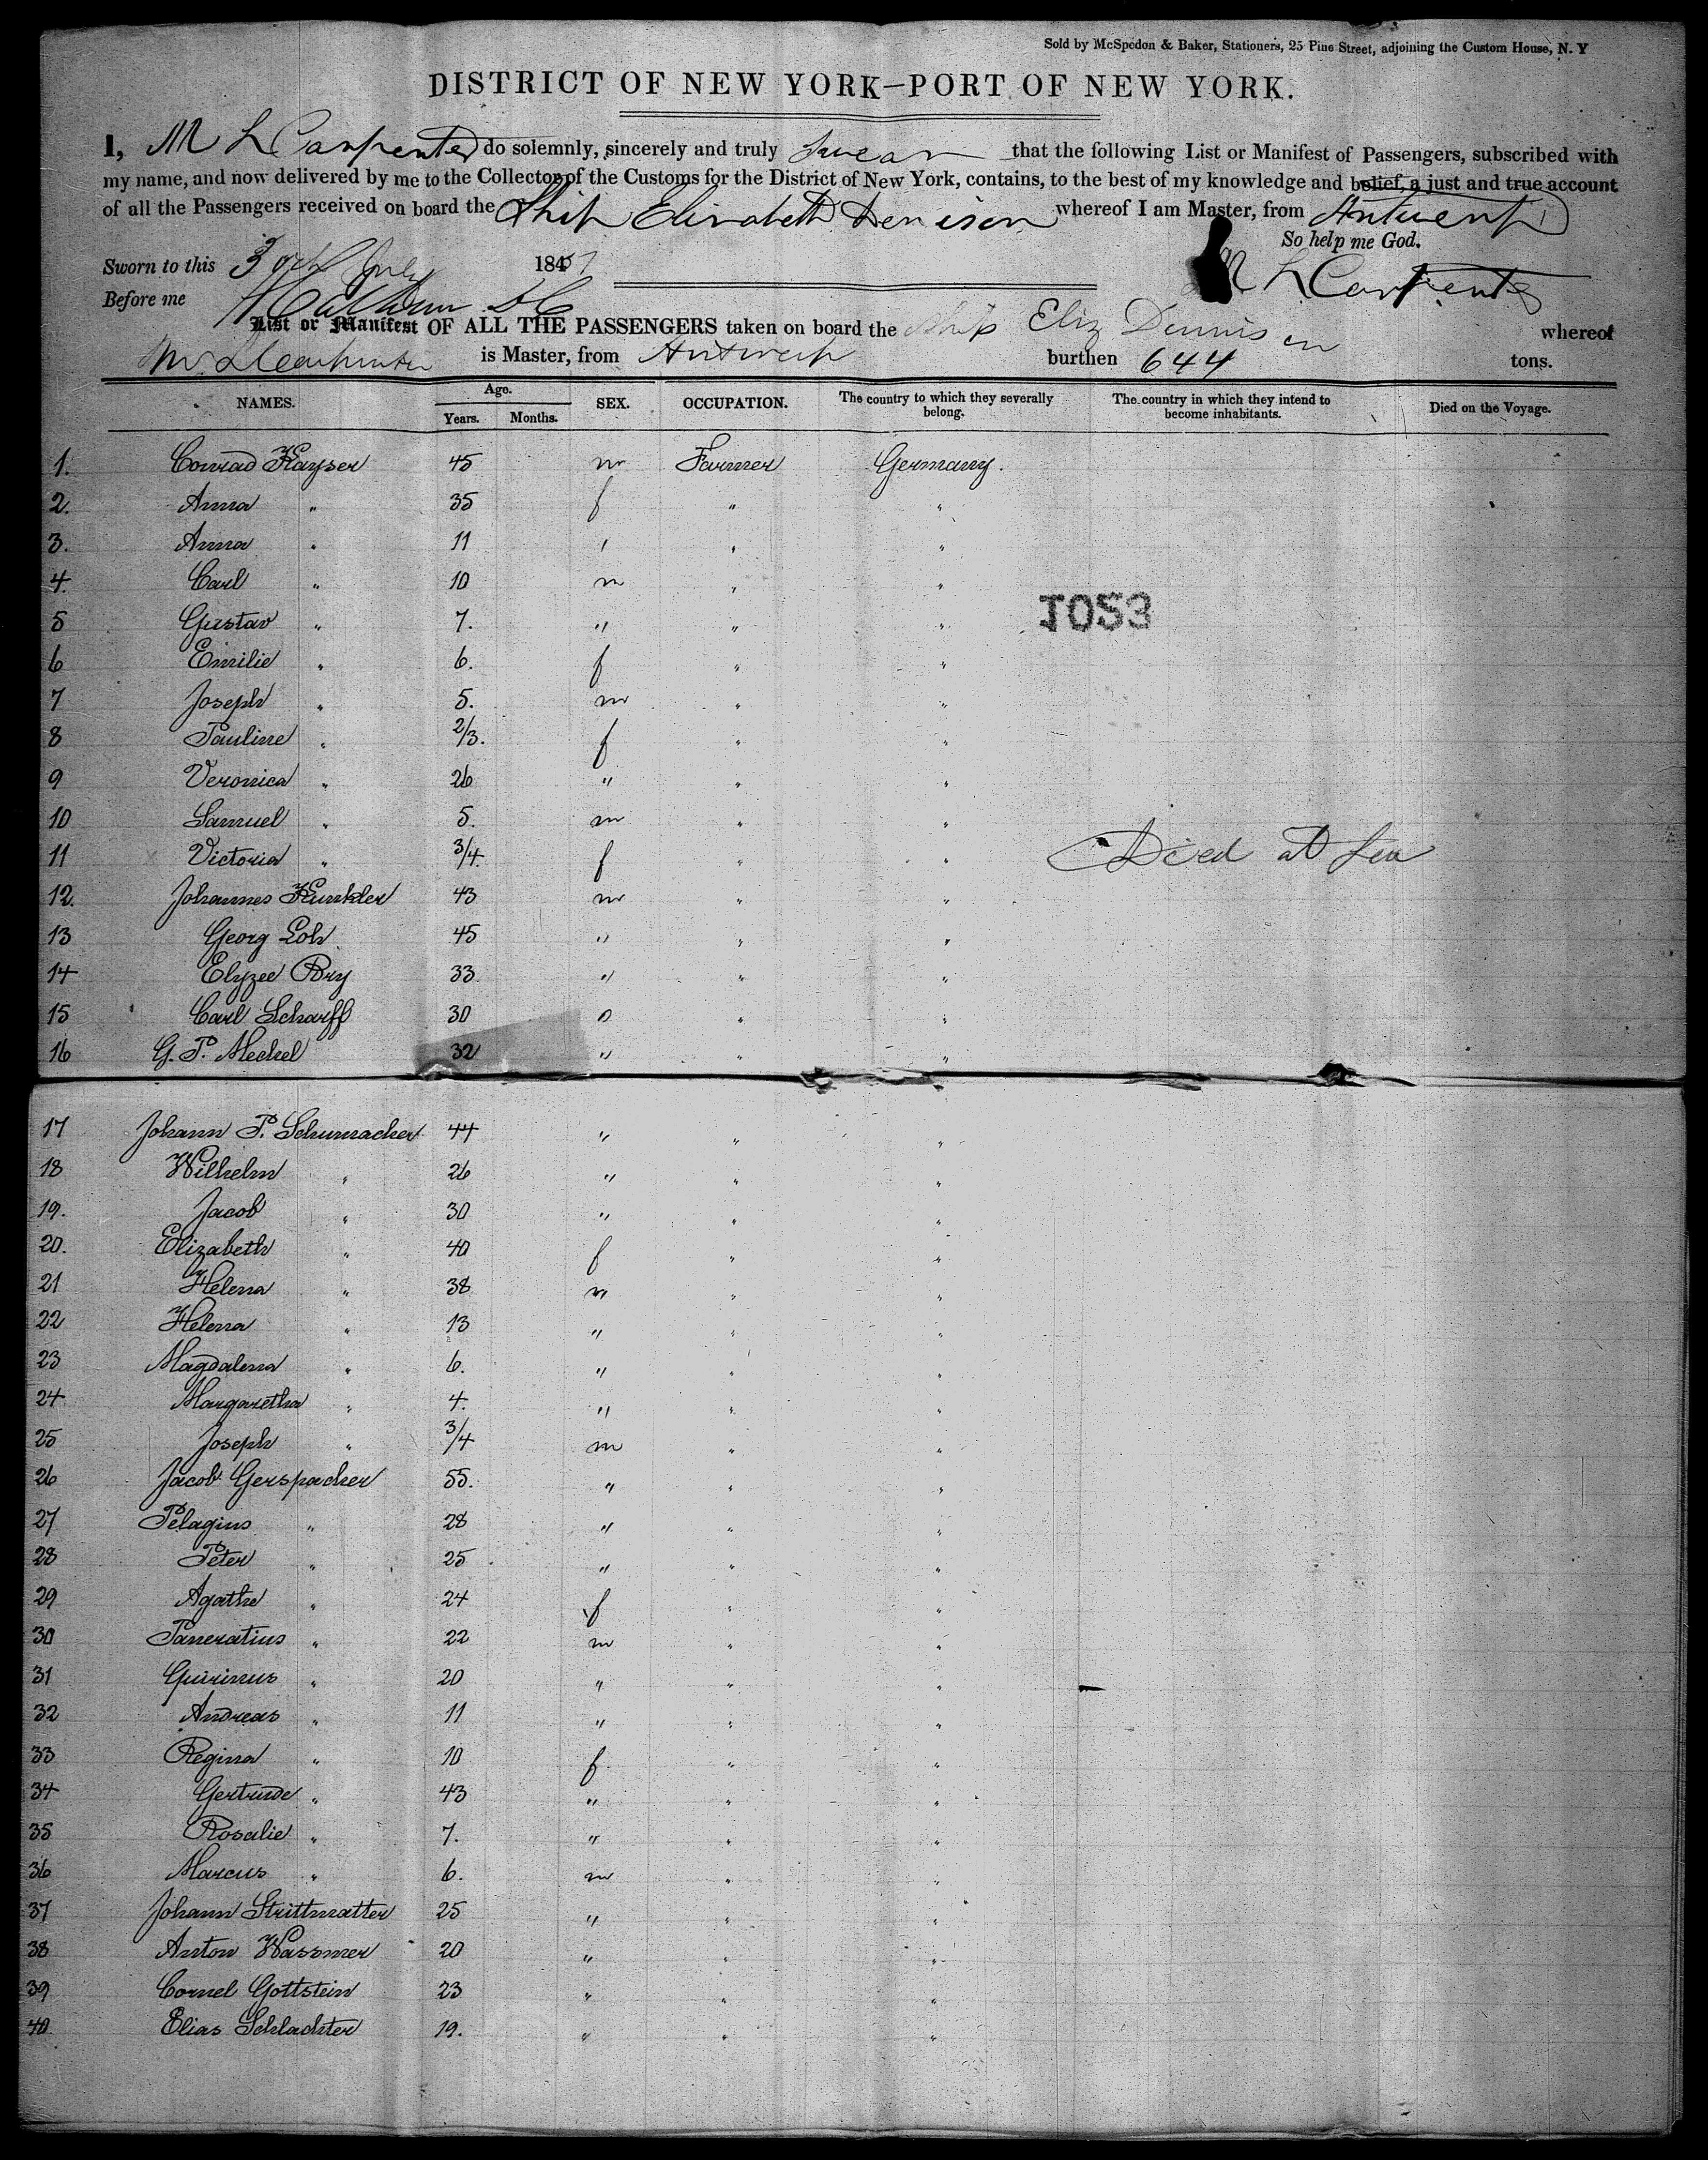 Sold by McSpedon & Baker, Stationers, 25 Pine Street, adjoining the Custom House, N. Y
DISTRICT OF NEW YORK—PORT OF NEW YORK.
I, M L Carpenter do solemnly, sincerely and truly swear that the following List or Manifest of Passengers, subscribed with
my name, and now delivered by me to the Collector of the Customs for the District of New York, contains, to the best of my knowledge and belief, a just and true account
of all the Passengers received on board the Ship Elizabeth Denison whereof I am Master, from Antwerp
So help me God.
Sworn to this July 185
M L Carpenter
Before me
List or Manifest OF ALL THE PASSENGERS taken on board the Ship Eliz Dennison whereof
M. L Carpenter is Master, from Antwerp burthen 644 tons.
NAMES. Age. Years. Months. SEX. OCCUPATION. The country to which they severally belong. The country in which they intend to become inhabitants. Died on the Voyage.
1. Conrad Kayser 45 m Farmer Germany.
2. Anna " 35 f " "
3. Anna " 11 " " "
4. Carl " 10 m " "
5 Gustav " 7. " " "
J053
6 Emilie " 6. f " "
7 Joseph " 5. m " "
8 Pauline " 2/3. f " "
9 Veronica " 26 " " "
10 Samuel " 5. m " "
11 Victoria " 3/4. f " " Died at Sea
12. Johannes Kunkler 43 m " "
13 Georg Loh 45 " " "
14 Elyzee Bry 33. " " "
15 Carl Scharff 30 " " "
16 G. P. Meckel 32 " " "
17 Johann P. Schumacher 44 " " "
18 Wilhelm " 26 " " "
19. Jacob " 30 " " "
20. Elizabeth " 40 f " "
21 Helena " 38 m " "
22 Helena " 13 " " "
23 Magdalena " 6. " " "
24 Margaretha " 4. " " "
25 Joseph " 3/4 m " "
26 Jacob Gerspacher 55. " " "
27 Pelagius " 28 " " "
28 Peter " 25 " " "
29 Agathe " 24 f " "
30 Pancratius " 22 m " "
31 Quirinus " 20 " " "
32 Andreas " 11 " " "
33 Regina " 10 f " "
34 Gertrude " 43 " " "
35 Rosalie " 7. " " "
36 Marcus " 6. m " "
37 Johann Strittmatter 25 " " "
38 Anton Wassmer 20 " " "
39 Cornel Gottstein 23 " " "
40 Elias Schlachter 19. " " "